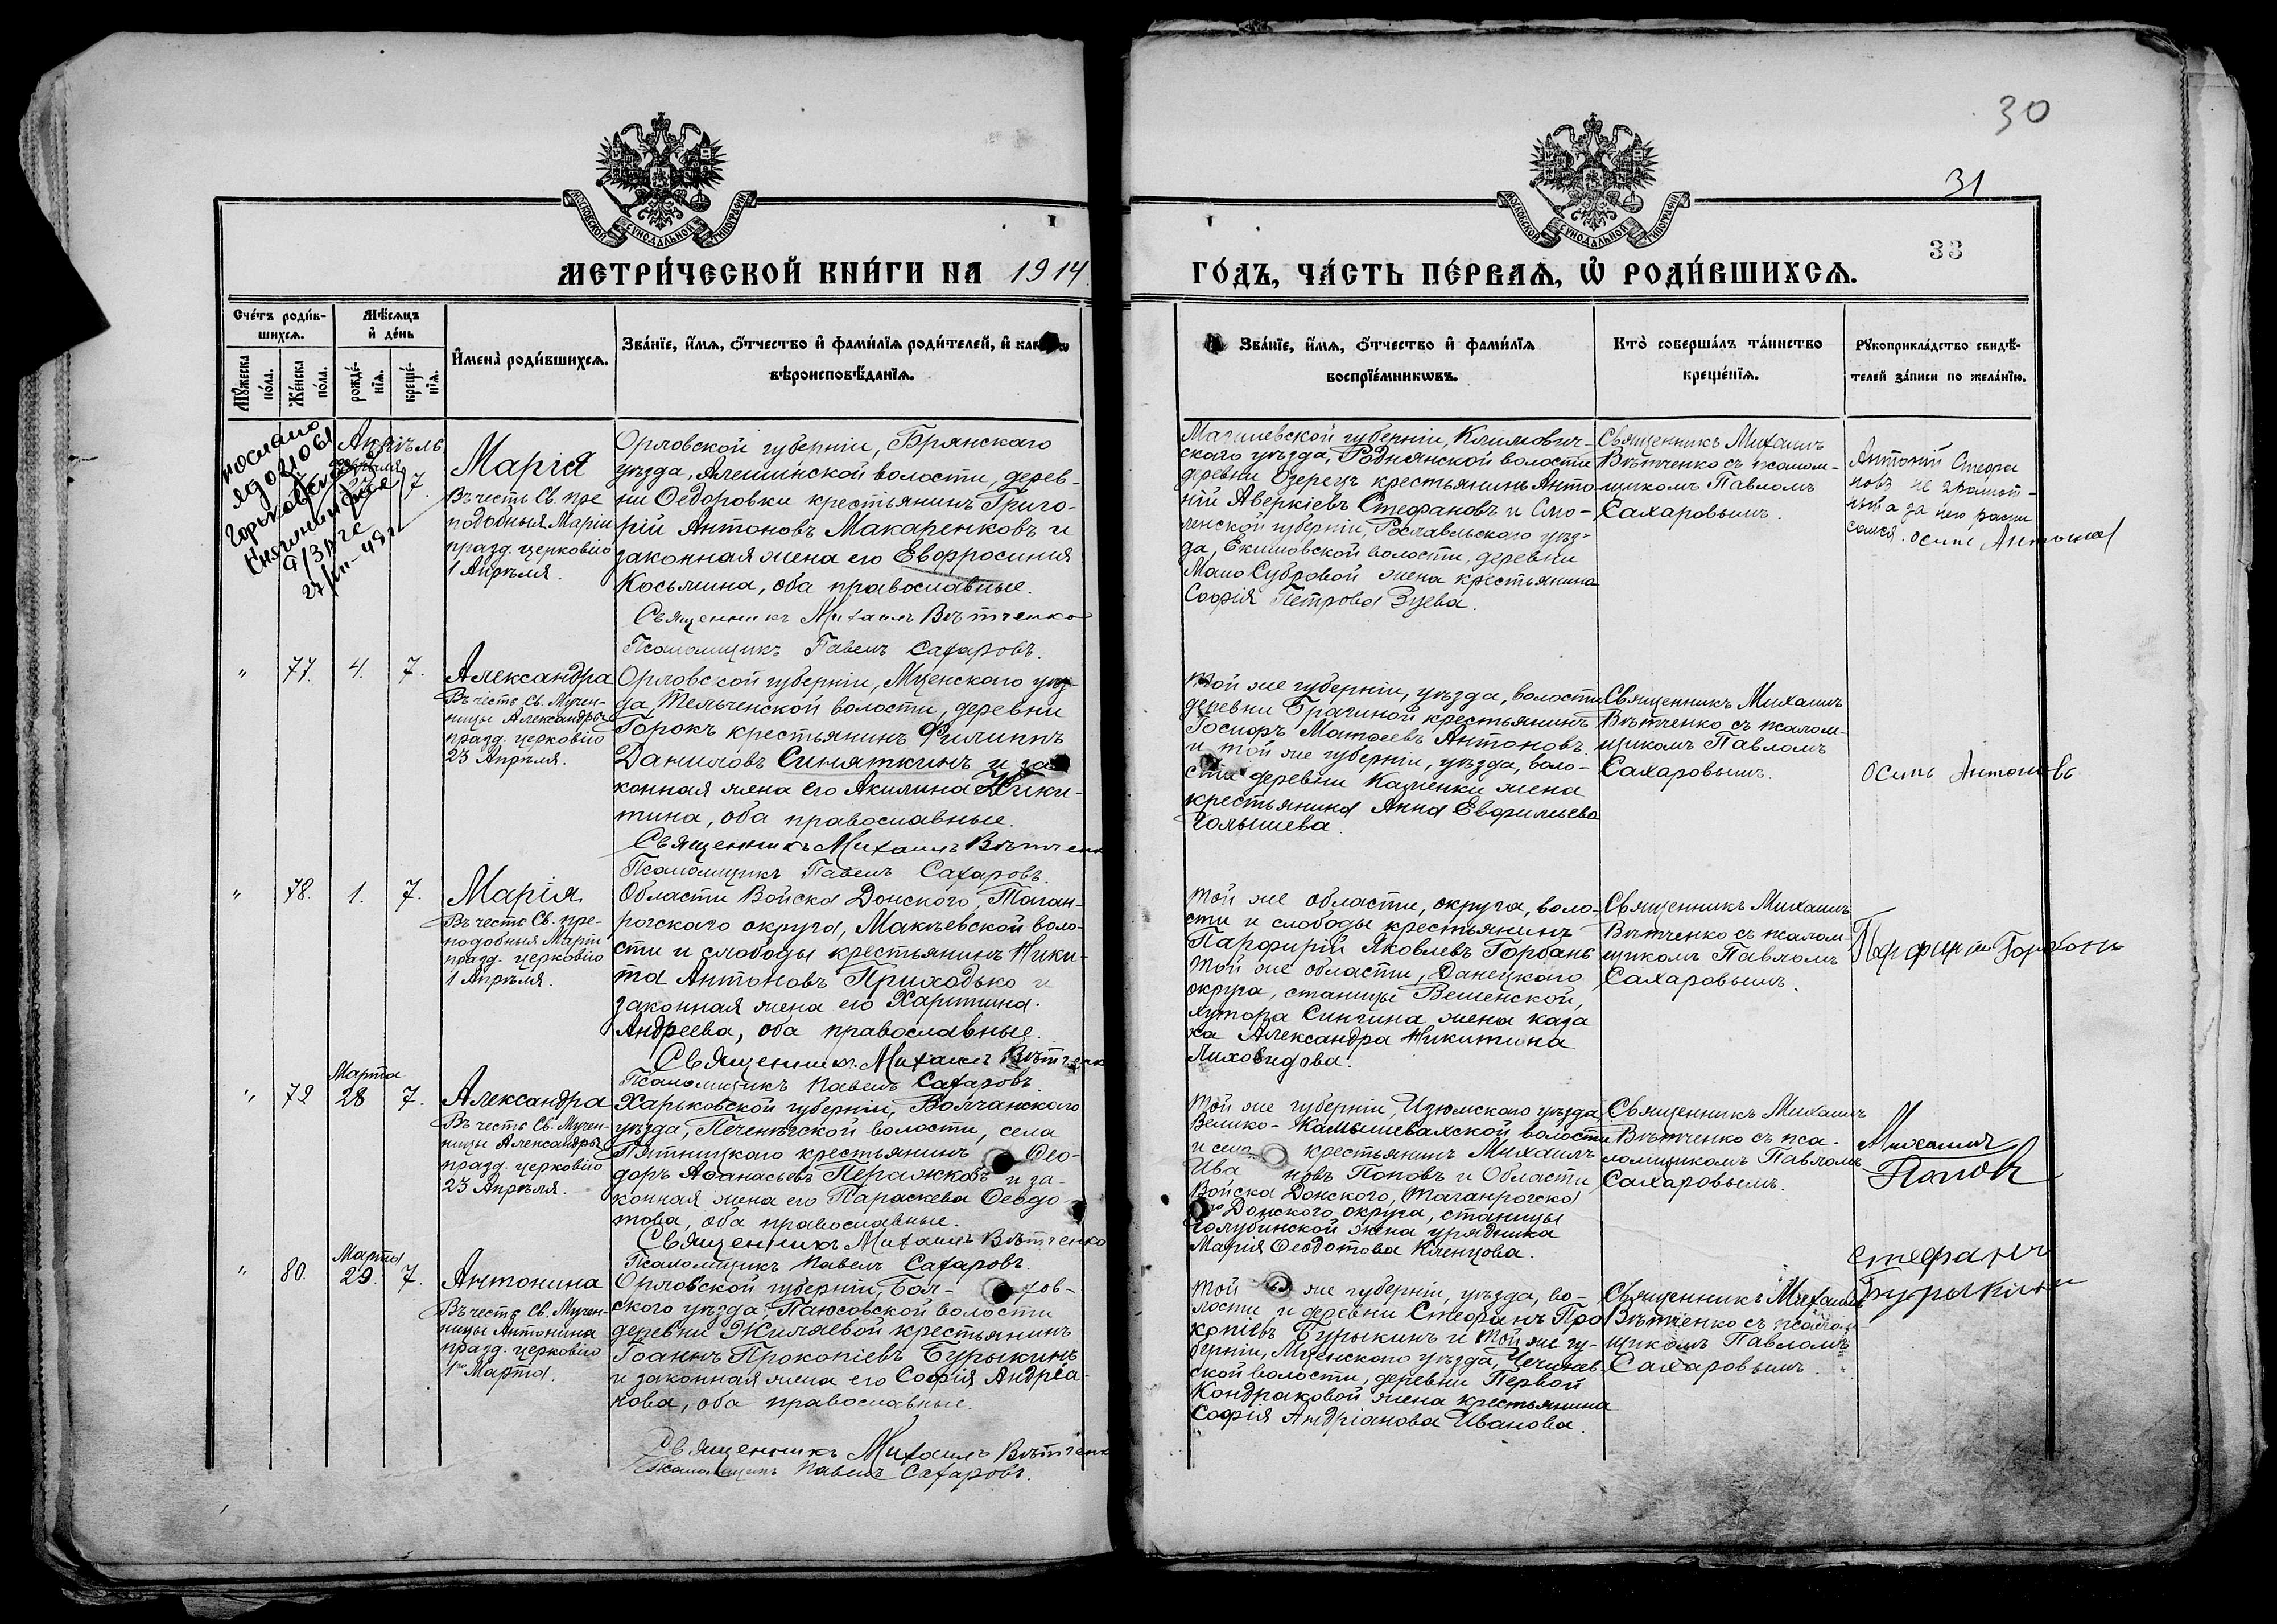 30
31
33
МОСКОВСКОЙ СѴНОДАЛЬНОЙ ТИПОГРАФІИ
МОСКОВСКОЙ СѴНОДАЛЬНОЙ ТИПОГРАФІИ
МЕТРИ́ЧЕСКОЙ КНИ́ГИ НА 1914
ГО́ДЪ, ЧА́СТЬ ПЕ́РВАѦ, Ѡ РОДИ́ВШИХСѦ.
Сче́тъ роди́в-
шихсѧ.
Мѹжеска
по́ла.
Же́нска
по́ла.
Мѣ́сѧцъ
и҆ де́нь
рожде́-
нїѧ.
креще́-
нїѧ.
И҆мена̀ роди́вшихсѧ.
Зва́нїе, и҆́мѧ, ѻ҆́тчество и҆ фами́лїѧ роди́телей, и҆
вѣроисповѣ́данїѧ.
Зва́нїе, и҆́мѧ, ѻ҆́тчество и҆ фами́лїѧ
воспрїе́мникѡвъ.
Кто̀ соверша́лъ та́инство
креще́нїѧ.
Рꙋкоприкла́дство свидѣ́-
телей за́писи по жела́нїю.
послано
ЯД 021061
27/VII-49г
Апрѣль
7.
Марія
Въ честь Св. пре
подобныя Маріи
празд. церковію
1 Апрѣля.
Орловской губерніи, Брянскаго
уѣзда, Алешинской волости, дерев-
ни Ѳедоровки крестьянинъ Григо-
рій Антоновъ Макаренковъ и
законная жена его Евфросинія
Косьмина, оба православные.
Священникъ Михаилъ Вѣтченко
Псаломщикъ Павелъ Сахаровъ.
Могилевской губерніи, Климович-
скаго уѣзда, Роднянской волости
деревни Озерецъ крестьянинъ Анто-
ній Аверкіевъ Стефановъ и Смо-
ленской губерніи, Рославльскаго уѣз-
да, Екимовской волости, деревни
Мало Субровой жена крестьянина
Софія Петрова Зуева.
Священникъ Михаилъ
Вѣтченко съ псалом-
щикомъ Павломъ
Сахаровымъ.
Антоній Стефа
новъ не грамот-
ный а за него распи
сался. осипъ Антонов
" 77. 4. 7.
Александра
Въ честь Св. Мучен-
ницы Александры
празд. церковію
23 Апрѣля.
Орловской губерніи, Мценскаго уѣз-
да, Тельченской волости, деревни
Горокъ крестьянинъ Филиппъ
Даниловъ Синяткинъ и за
конная жена его Акилина Ники-
тина, оба православные.
Священникъ Михаилъ Вѣтченк
Псаломщикъ Павелъ Сахаровъ.
Той же губерніи, уѣзда, волости
деревни Брагиной крестьянинъ
Іосифъ Матѳеевъ Антоновъ
и той же губерніи, уѣзда, воло-
сти деревни Каменки жена
крестьянина Анна Евфимьева
Голышева.
Священникъ Михаилъ
Вѣтченко съ псалом-
щикомъ Павломъ
Сахаровымъ.
Осипъ Антоновъ
" 78. 1. 7.
Марія
Въ честь Св. пре-
подобныя Маріи
празд. церковію
1 Апрѣля.
Области Войска Донского, Таган-
рогскаго округа, Макѣевской воло-
сти и слободы крестьянинъ Ники-
та Антоновъ Приходько и
законная жена его Харитина
Андреева, оба православные.
Священникъ Михаилъ Вѣтченк
Псаломщикъ Павелъ Сахаровъ.
Той же области, округа, воло-
сти и слободы крестьянинъ
Парфирій Яковлевъ Горбань
Той же области, Донецкаго
округа, станицы Вешенской,
хутора Сингина жена каза
ка Александра Никитина
Лиховидова.
Священникъ Михаилъ
Вѣтченко съ псалом-
щикомъ Павломъ
Сахаровымъ.
Парфирій Горбань
Марта
" 79 28 7.
Александра
Въ честь Св. Мучен-
ницы Александры
празд. церковію
23 Апрѣля.
Харьковской губерніи, Волчанскаго
уѣзда, Печенѣгской волости, села
Пятницкаго крестьянинъ Ѳео-
доръ Аѳанасьевъ Перажковъ и за-
конная жена его Параскева Ѳеодо-
това, оба православные.
Священникъ Михаилъ Вѣтченко
Псаломщикъ Павелъ Сахаровъ.
Той же губерніи, Изюмскаго уѣзда
Велико-Камышевахской волости
и села крестьянинъ Михаилъ
Ива новъ Поповъ и Области
Войска Донского,
Донского округа, станицы
Голубинской жена урядника
Марія Ѳеодотова Кленцова.
Священникъ Михаилъ
Вѣтченко съ пса-
ломщикомъ Павломъ
Сахаровымъ.
Михаилъ
Поповъ
Марта
" 80. 29. 7.
Антонина
Въ честь Св. Мучен-
ницы Антонина
празд. церковію
1го Марта.
Орловской губерніи, Бол- хов-
скаго уѣзда Паюсовской волости
деревни Жиляевой крестьянинъ
Іоаннъ Прокопіевъ Бурыкинъ
и законная жена его Софія Андріа-
нова, оба православные.
Священникъ Михаилъ Вѣтченк
Псаломщикъ Павелъ Сахаровъ.
Той же губерніи, уѣзда, во-
лости и деревни Стефанъ Про
копіевъ Бурыкинъ и той же гу-
берніи, Мценскаго уѣзда,
ской волости, деревни Первой
Кондраковой жена крестьянина
Софія Андріанова Иванова.
Священникъ Михаилъ
Вѣтченко съ псалом
щикомъ Павломъ
Сахаровымъ.
Стефанъ
Бурыкинъ